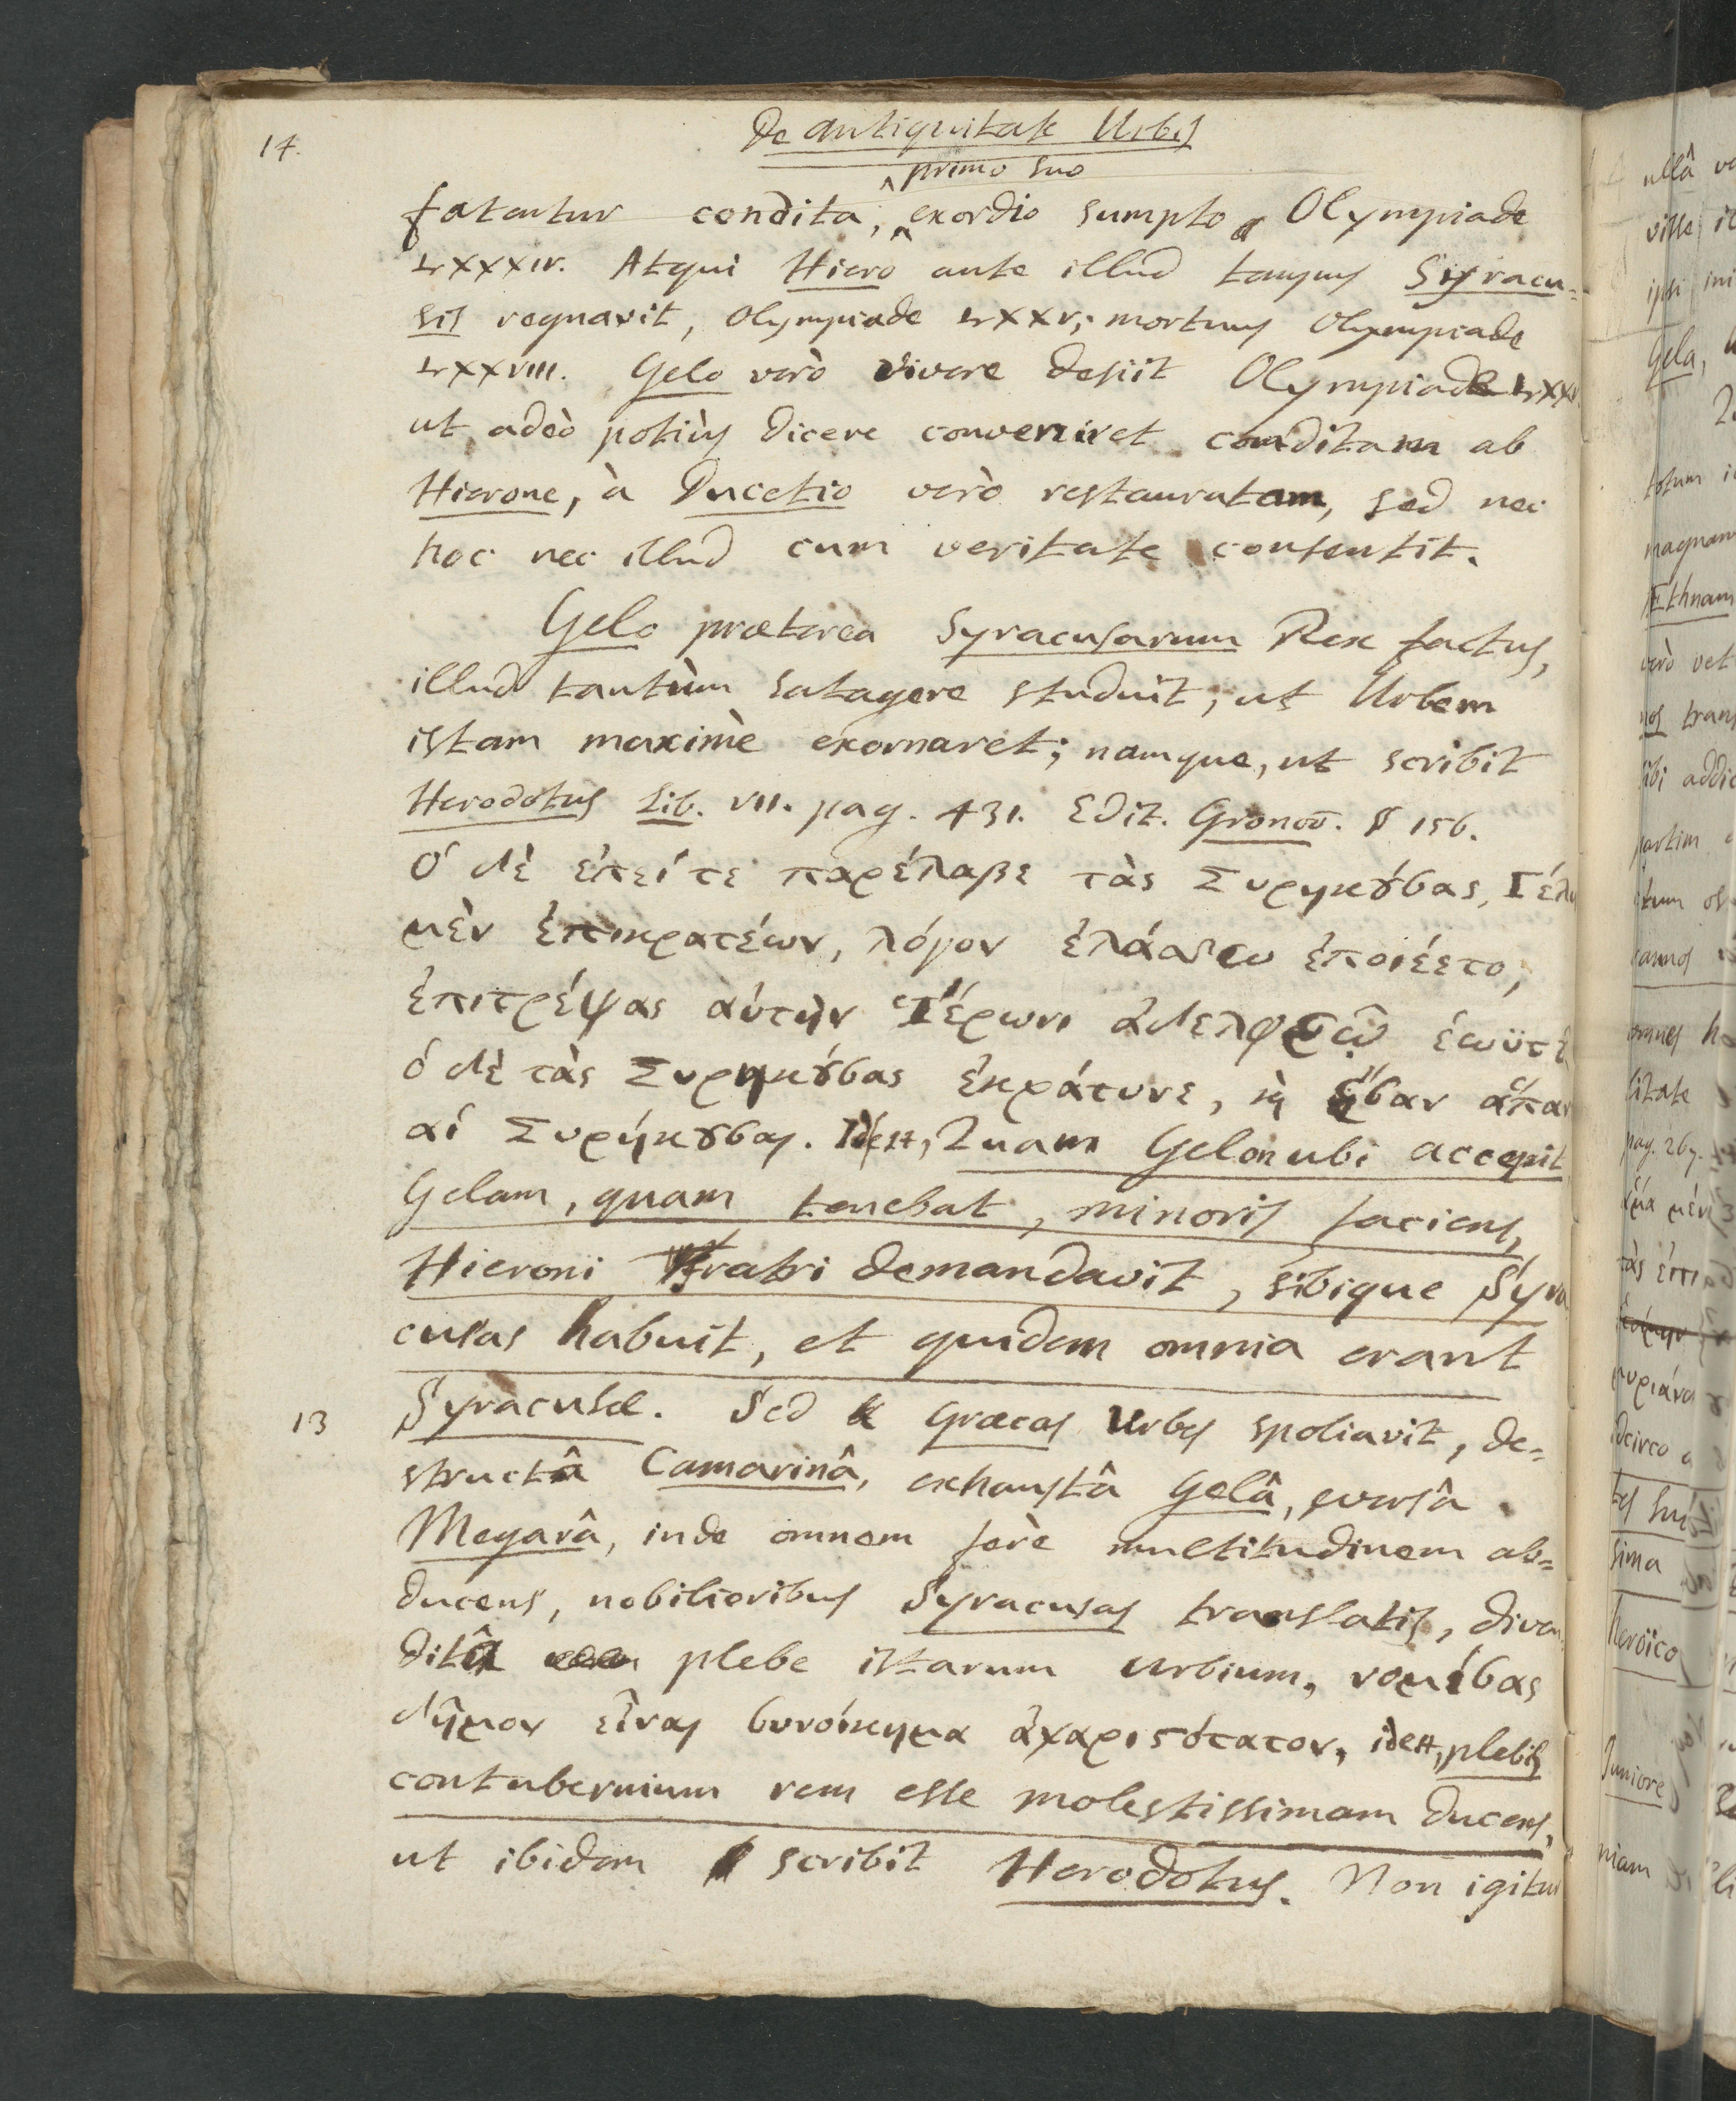 14.
De antiquitate Urbis
primo suo
fatentur condita, exordio sumpto a Olympiade
LXXXIV. Atqui Hiero ante illud tempus Syracu-
sis regnavit, Olympiade LXXV; mortuus Olympiade
LXXVIII. Gelo verò vivere desiit Olympiade
ut adeò potiùs dicere conveniret conditam ab
Hierone, à Ducetio verò restauratam, sed nec
hoc nec illud cum veritate consentit.
Gelo prætereà Syracusarum Rex factus,
illud tantùm satagere studuit, ut Urbem
istam maximè exornaret; namque, ut scribit
Herodotus Lib. VII. pag. 431. Edit. Gronov. § 156.
Ὁ δὲ ἐπεί τε παρέλαβε τὰς Συρηκȣ́σας,
μὲν ἐπικρατέων, λόγον ἐλάσσω ἐποιέετο,
ἐπιτρέψας αὐτὴν Ἱέρωνι ἀδελφεῷ
ὁ δὲ τὰς Συρηκȣ́σας ἐκράτυνε, ϗ ἦσαν
αἱ Συρήκȣσαι. Idest, Quam Gelon ubi accepit
Gelam, quam tenebat, minoris faciens,
Hieroni fratri demandavit, sibique Syra
cusas habuit, et quidem omnia erant
13 Syracusæ. Sed & Græcas Urbes spoliavit, de-
structâ Camarinâ, exhaustâ Gelâ, eversâ
Megarâ, inde omnem ferè multitudinem ab-
ducens, nobilioribus Syracusas translatis, diven
ditâ plebe istarum Urbium, νομίσας
δῆμον εἶναι συνοίκημα ἀχαριστότατον, idest, plebis
contubernium rem esse molestissimam ducens,
ut ibidem scribit Herodotus. Non igitur